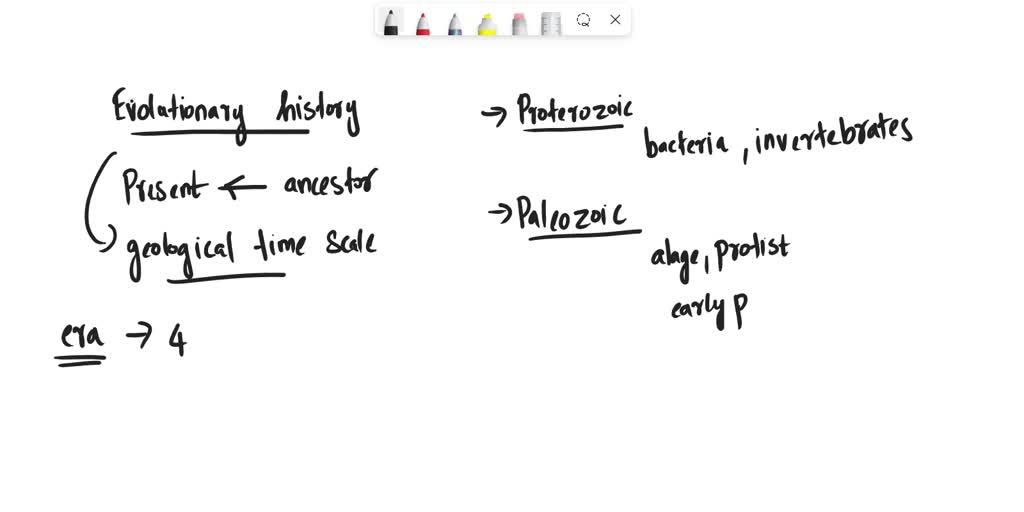 Evolationary history
Present ← ancestor
geological time scale
era → 4
→ Proterozoic
bacteria, invertebrates
→ Paleozoic
alage, protist
early p